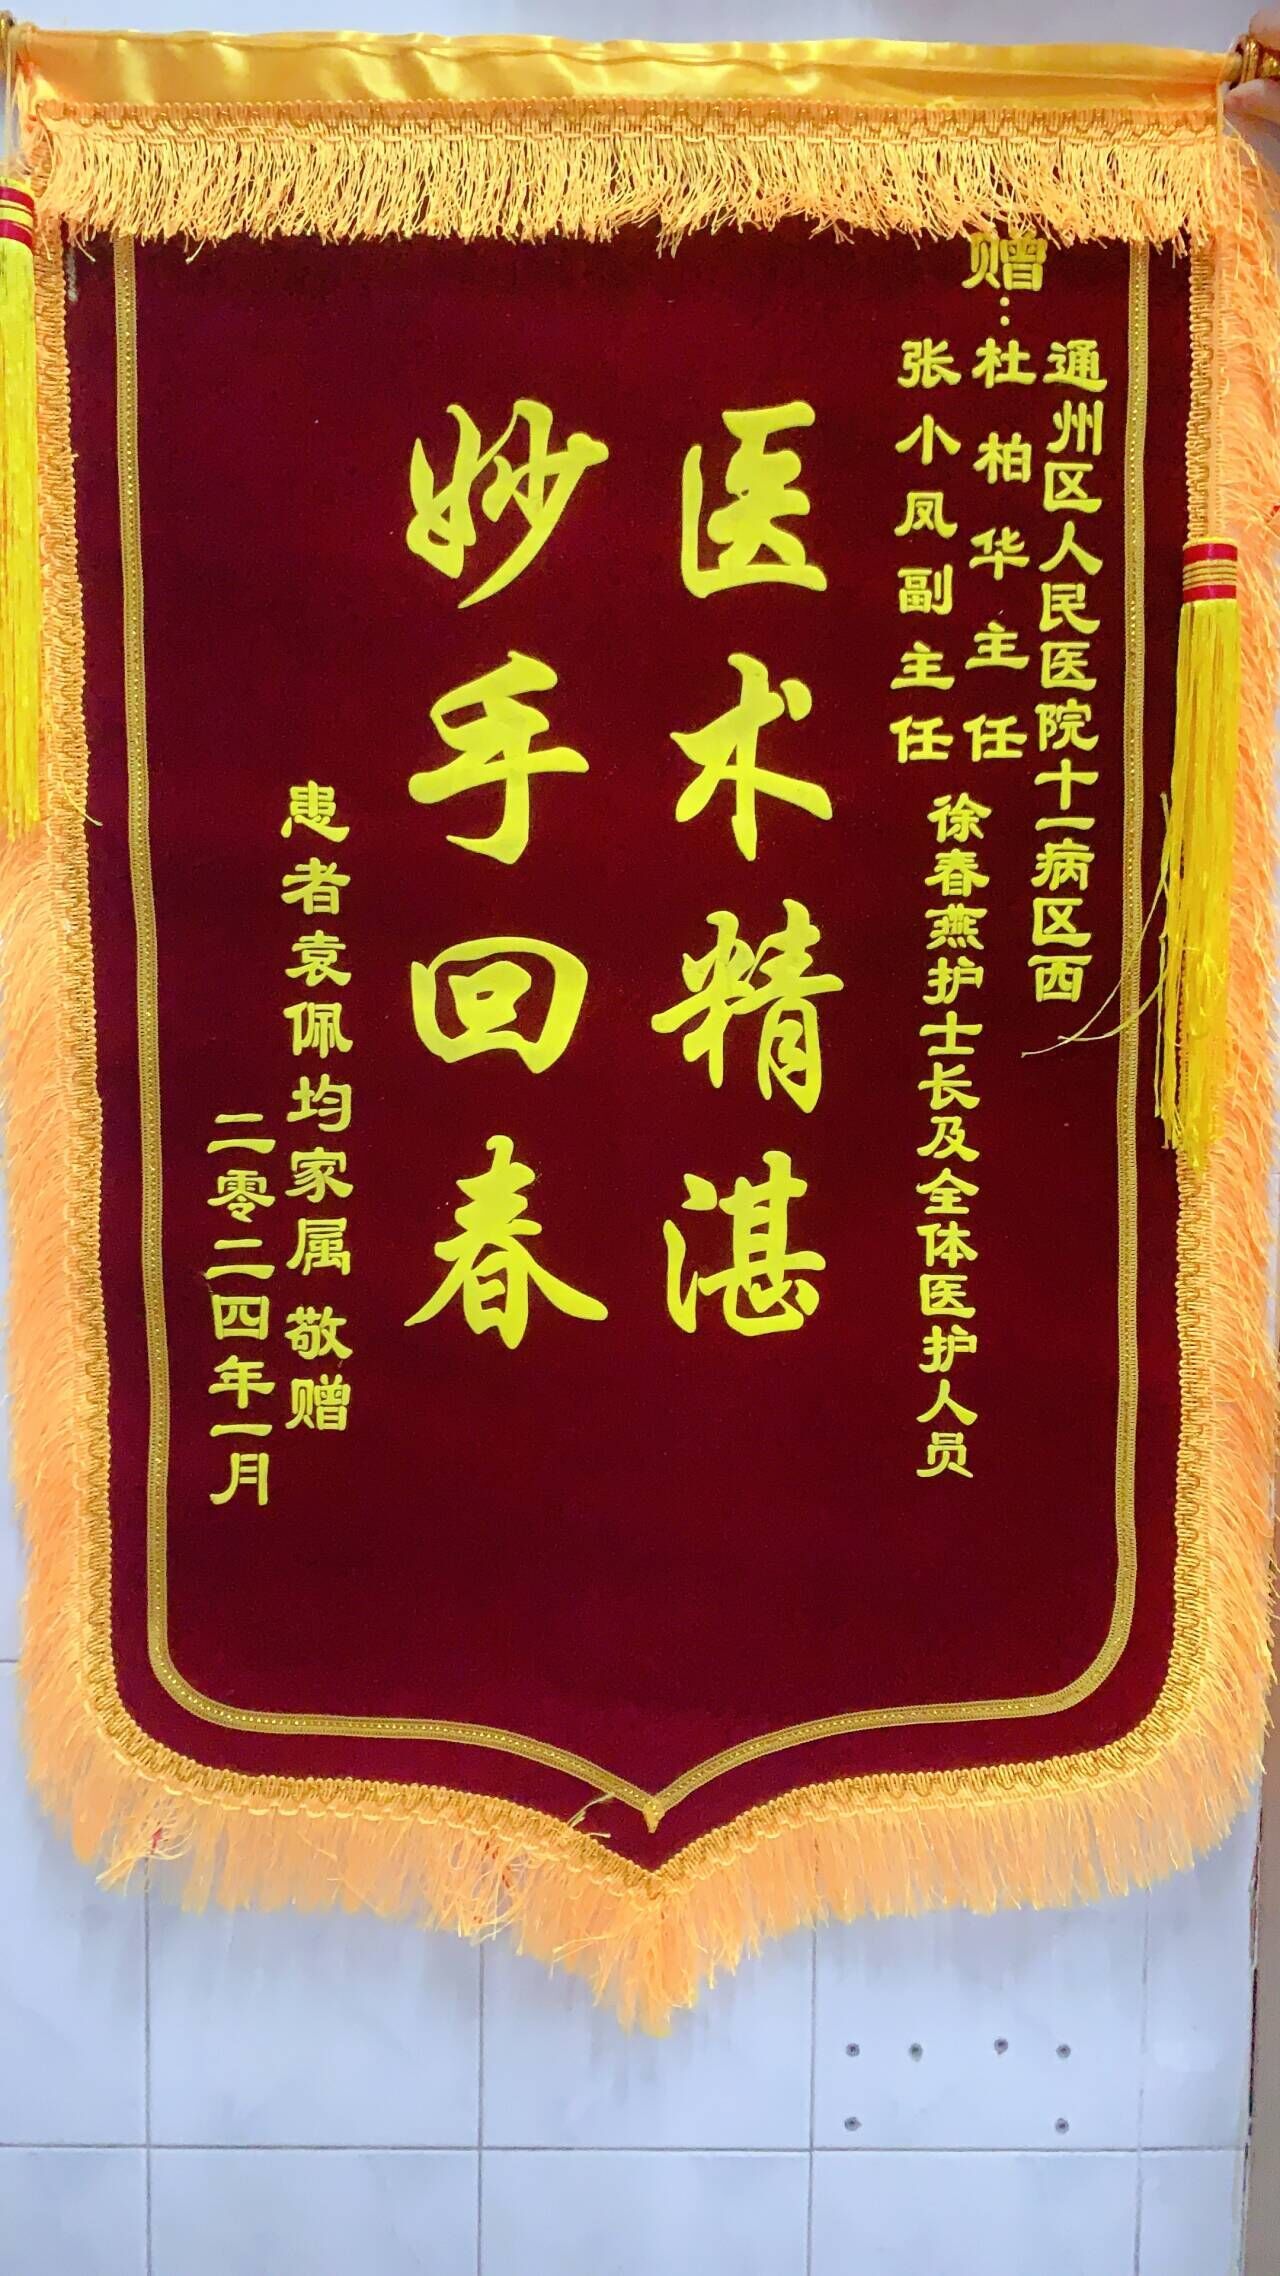 赠：
通州区人民医院十一病区西
杜柏华主任
张小凤副主任
徐春燕护士长及全体医护人员
医术精湛
妙手回春
患者袁佩均家属 敬赠
二零二四年一月